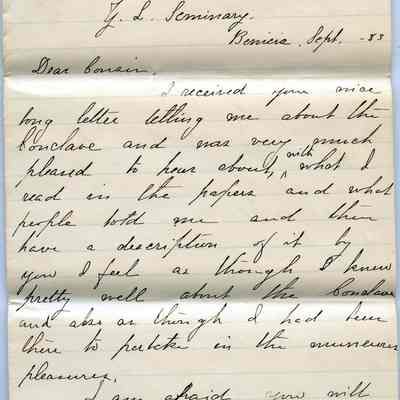 Y. L. Seminary.
Benicia, Sept. -83
Dear Cousin,
I received your nice
long letter telling me about the
Conclave and was very much
pleased to hear about, with what I
read in the papers and what
people told me and then
have a description of it by
you I feel as though I knew
pretty well about the Conclave
and also as though I had been
there to partake in the numerous
pleasures.
I am afraid you will